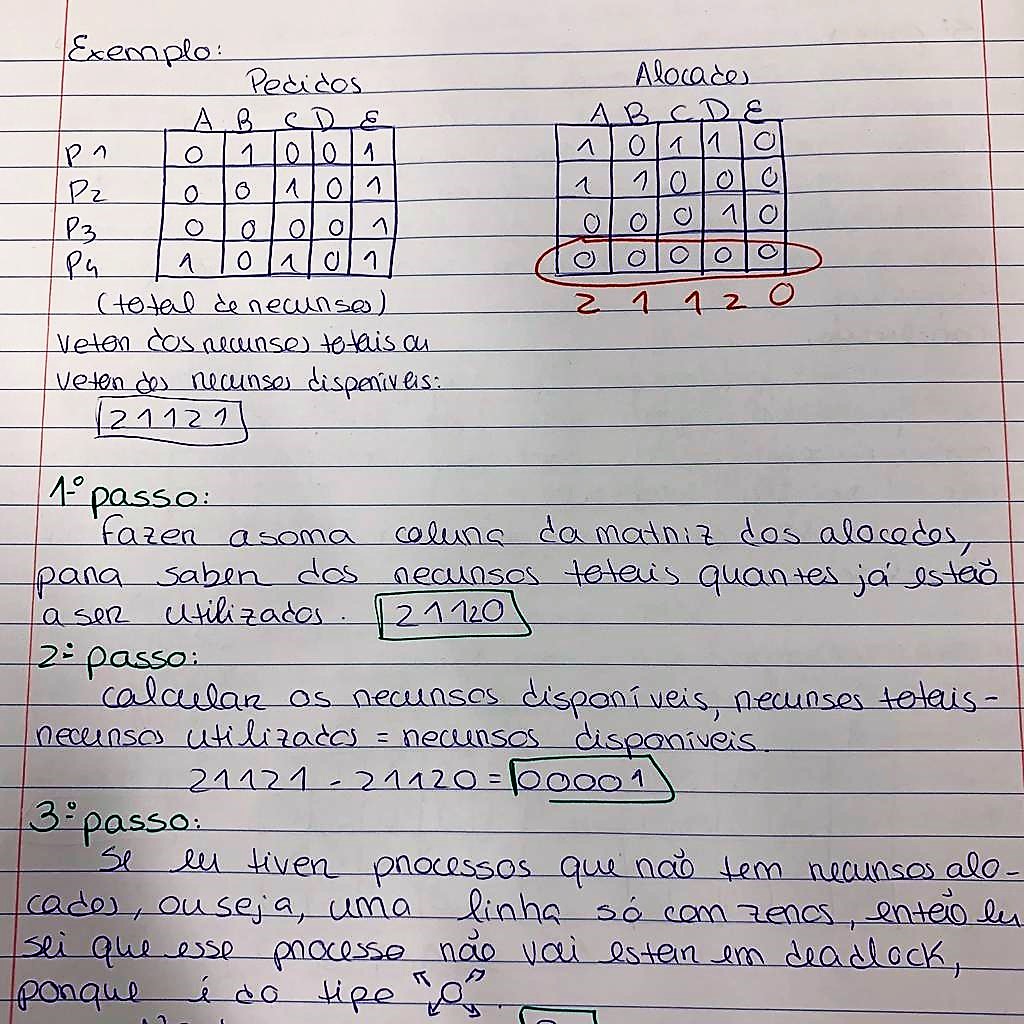 Exemplo:
Pedidos Alocados
A B C D E A B C D E
P1 0 1 0 0 1 1 0 1 1 0
P2 0 0 1 0 1 1 1 0 0 0
P3 0 0 0 0 1 0 0 0 1 0
P4 1 0 1 0 1 0 0 0 0 0
(total de recursos) 2 1 1 2 0
vetor dos recursos totais ou
vetor dos recursos disponíveis:
21121
1º passo:
Fazer a soma coluna da matriz dos alocados,
para saber dos recursos totais quantos já estão
a ser utilizados. 21120
2º passo:
calcular os recursos disponíveis, recursos totais-
recursos utilizados = recursos disponíveis.
21121 - 21120 = 00001
3º passo:
Se eu tiver processos que não tem recursos alo-
cados, ou seja, uma linha só com zeros, então eu
sei que esse processo não vai estar em deadlock,
porque é do tipo